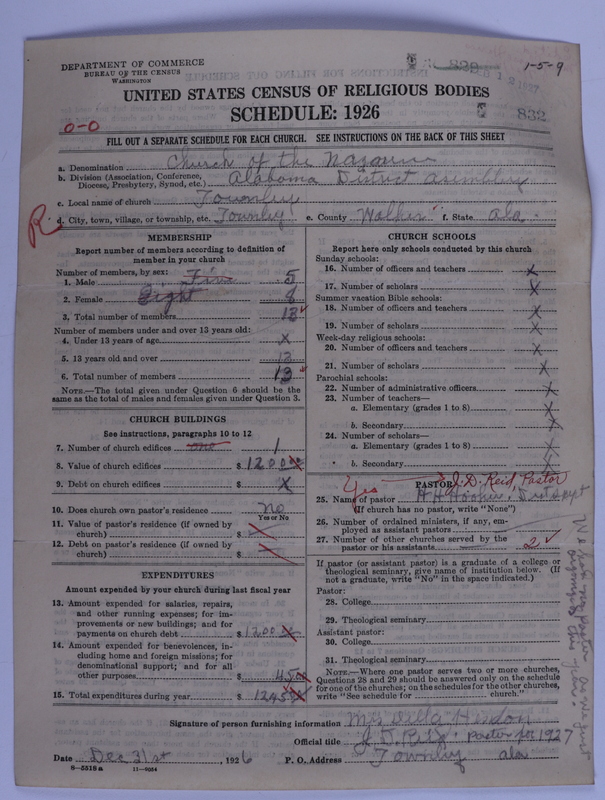 DEPARTMENT OF COMMERCE
BUREAU OF THE CENSUS
WASHINGTON
1-5-9
UNITED STATES CENSUS OF RELIGIOUS BODIES
SCHEDULE: 1926
832
0-0
FILL OUT A SEPARATE SCHEDULE FOR EACH CHURCH. SEE INSTRUCTIONS ON THE BACK OF THIS SHEET
a. Denomination Church of the Nazarene
b. Division (Association, Conference, Diocese, Presbytery, Synod, etc.) Alabama District Assembly
c. Local name of church Townley
R.
d. City, town, village, or township, etc. Townley e. County Walker f. State Ala.
MEMBERSHIP
Report number of members according to definition of
member in your church
Number of members, by sex:
1. Male Five 5
2. Female Eight 8
3. Total number of members 13
Number of members under and over 13 years old:
4. Under 13 years of age x
5. 13 years old and over 13
6. Total number of members 13
NOTE.—The total given under Question 6 should be
same as the total of males and females given under Question 3.
CHURCH BUILDINGS
See instructions, paragraphs 10 to 12
7. Number of church edifices one 1
8. Value of church edifices $ 1200
9. Debt on church edifices $ X
10. Does church own pastor's residence? No
Yes or No
11. Value of pastor's residence (if owned by
church) $ X
12. Debt on pastor's residence (if owned by
church) $ X
EXPENDITURES
Amount expended by your church during last fiscal year
13. Amount expended for salaries, repairs,
and other running expenses; for im-
provements or new buildings; and for
payments on church debt $ 1200
14. Amount expended for benevolences, in-
cluding home and foreign missions; for
denominational support; and for all
other purposes $ 45
15. Total expenditures during year $ 1245
CHURCH SCHOOLS
Report here only schools conducted by this church
Sunday schools:
16. Number of officers and teachers x
17. Number of scholars x
Summer vacation Bible schools:
18. Number of officers and teachers x
19. Number of scholars x
Week-day religious schools:
20. Number of officers and teachers x
21. Number of scholars x
Parochial schools:
22. Number of administrative officers x
23. Number of teachers—
a. Elementary (grades 1 to 8) x
b. Secondary x
24. Number of scholars—
a. Elementary (grades 1 to 8) x
b. Secondary x
PASTOR
Yes J. D. Reid, Pastor
25. Name of pastor H. H. Hooker, Dist Supt
(If church has no pastor, write "None")
26. Number of ordained ministers, if any, em-
ployed as assistant pastors
27. Number of other churches served by the
pastor or his assistants 2
If pastor (or assistant pastor) is a graduate of a college or
theological seminary, give name of institution below. (If
not a graduate, write "No" in the space indicated.)
Pastor:
28. College
29. Theological seminary
Assistant pastor:
30. College
31. Theological seminary
NOTE.—Where one pastor serves two or more churches,
Questions 28 and 29 should be answered only on the schedule
for one of the churches; on the schedules for the other churches,
write "See schedule for church."
Signature of person furnishing information Mrs
Official title Pastor for 1927
Date Dec 31st, 1926 P. O. Address Townley Ala
8-5518a 11-9084